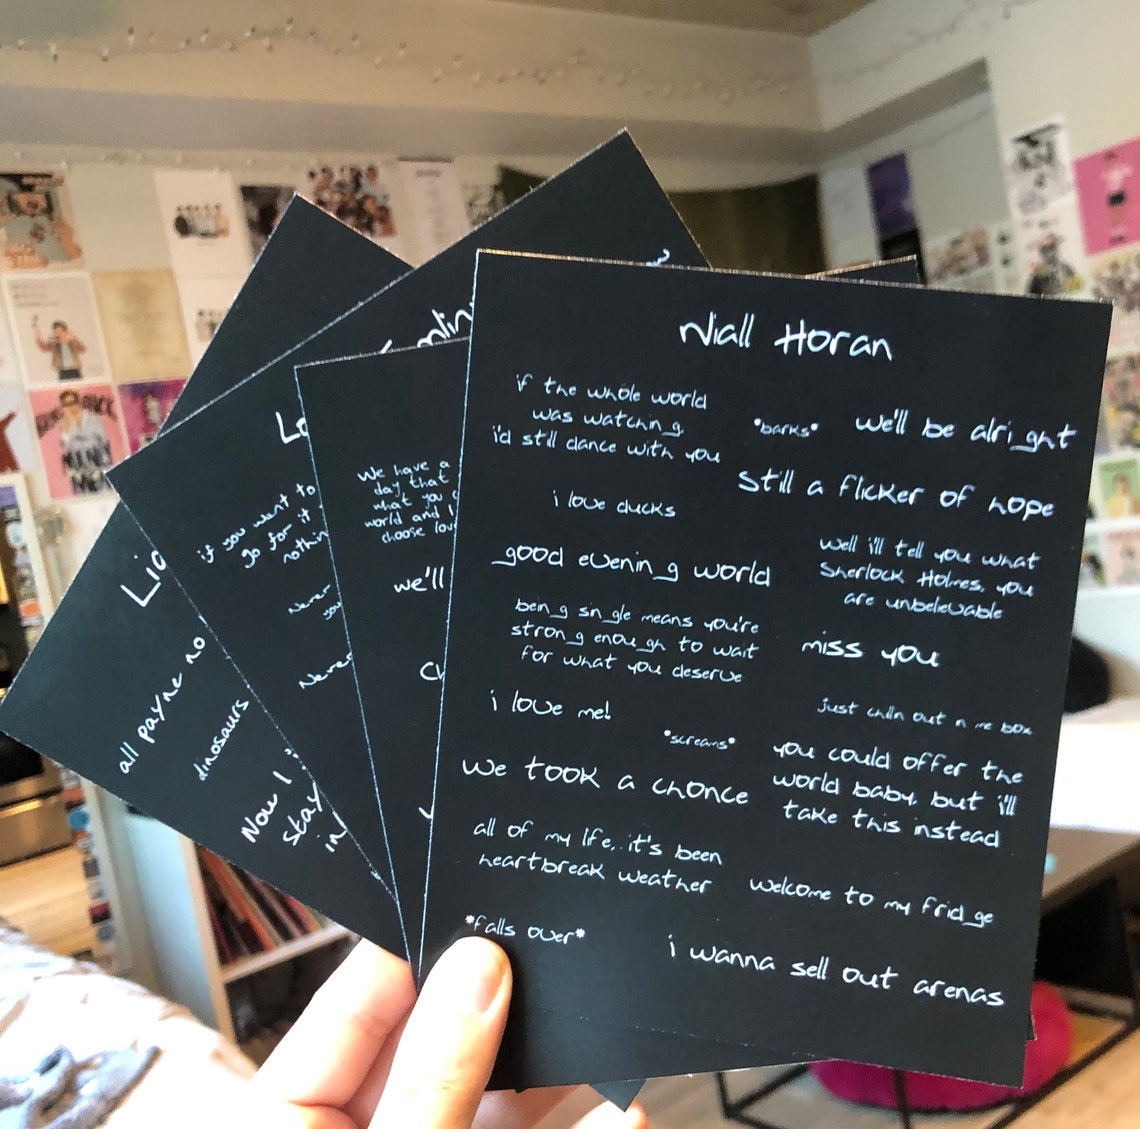 Niall Horan
if the whole world
was watching
i'd still dance with you
*barks*
we'll be alright
still a flicker of hope
i love ducks
well i'll tell you what
Sherlock Holmes, you
are unbelievable
good evening world
being single means you're
strong enough to wait
for what you deserve
miss you
i love me!
just chilln out n me box
*screams*
we took a chonce
you could offer the
world baby, but i'll
take this instead
all of my life.. it's been
heartbreak weather
welcome to my fridge
*falls over*
i wanna sell out arenas
We have a
day that
what you
world and I
choose
we'll
if you want to
go for it
Never
Never
all payne no
dinosaurs
Now I
stay
in